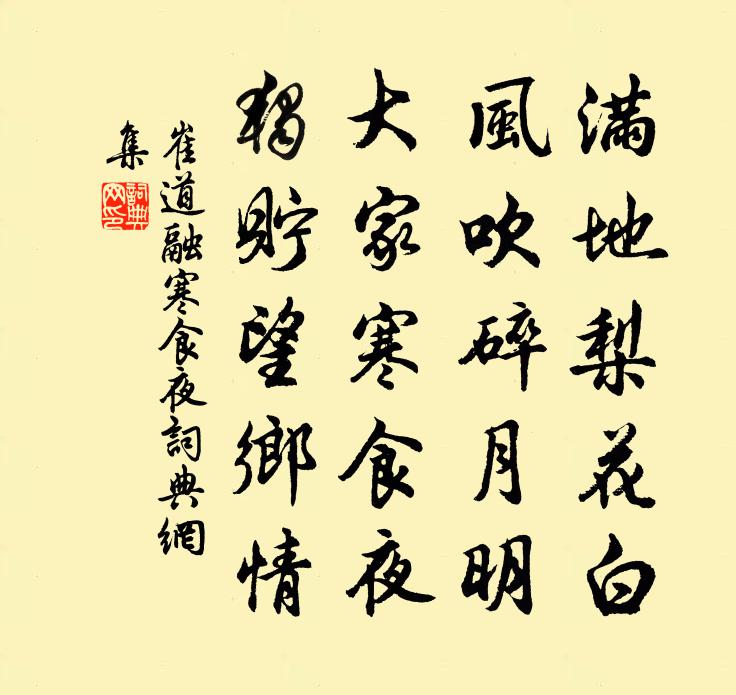 滿地梨花白
風吹碎月明
大家寒食夜
獨貯望鄉情
崔道融寒食夜詞典網
集
詞典
网印